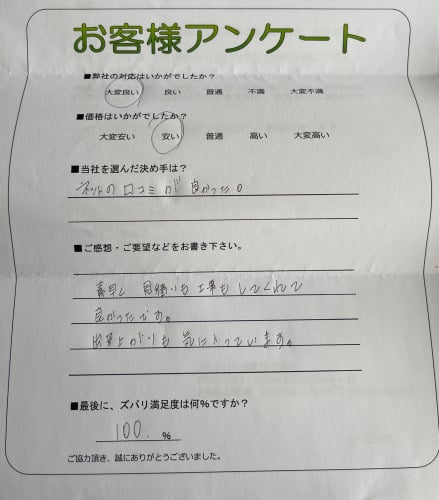 お客様アンケート
■弊社の対応はいかがでしたか？
大変良い 良い 普通 不満 大変不満
■価格はいかがでしたか？
大変安い 安い 普通 高い 大変高い
■当社を選んだ決め手は？
ネットの口コミが良かった。
■ご感想・ご要望などをお書き下さい。
素早く見積りも工事もしてくれて
良かったです。
出来上がりも気に入っています。
■最後に、ズバリ満足度は何％ですか？
100. ％
ご協力頂き、誠にありがとうございました。